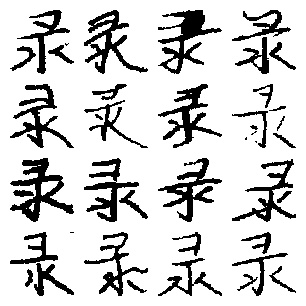 录 录 录 录
录 录 录 录
录 录 录 录
录 录 录 录